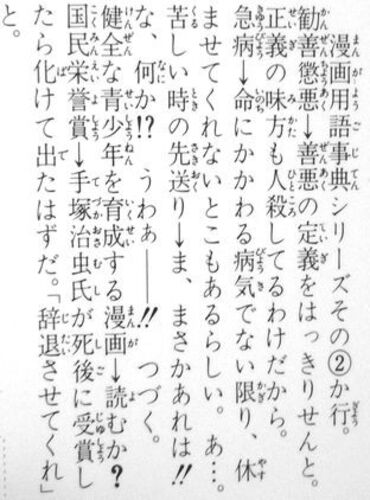 漫画用語事典シリーズその②か行。
勧善懲悪→善悪の定義をはっきりせんと。
正義の味方も人殺してるわけだから。
急病→命にかかわる病気でない限り、休
ませてくれないとこもあるらしい。あ…。
苦しい時の先送り→ま、まさかあれは!!
な、何か!?　うわぁ――!!　つづく。
健全な青少年を育成する漫画→読むか?
国民栄誉賞→手塚治虫氏が死後に受賞し
たら化けて出たはずだ。「辞退させてくれ」
と。